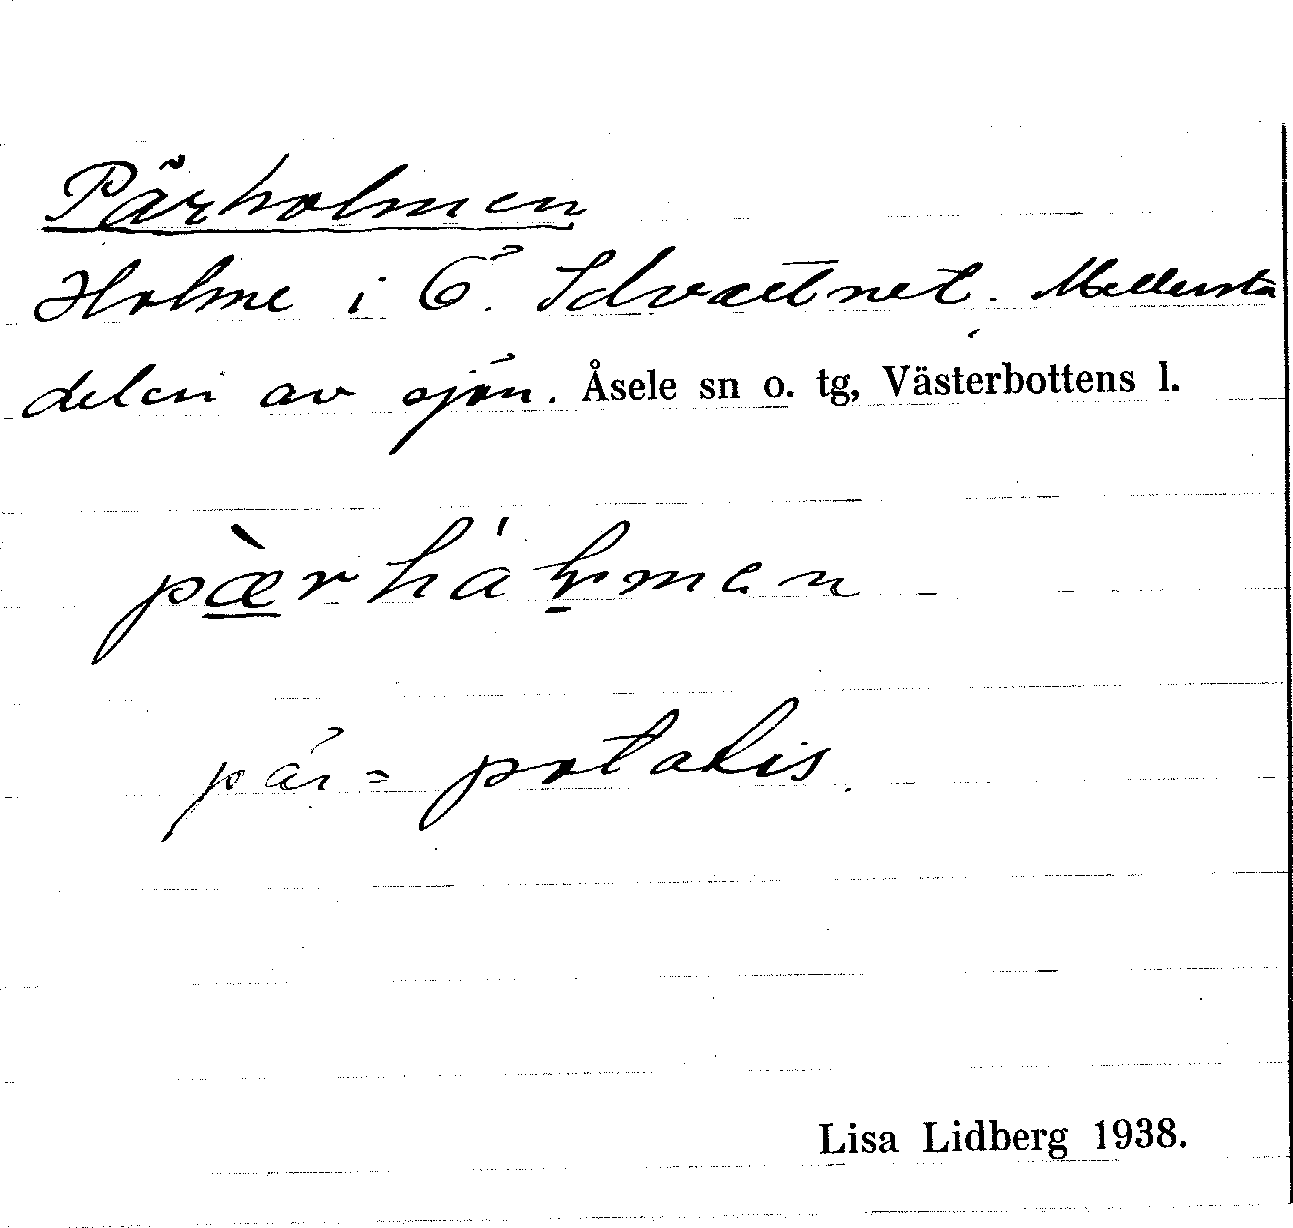 Pärholmen
Holme i Ö. Idvattnet. Mellersta
delen av sjön. Åsele sn o. tg, Västerbottens l.
pæ̀rhåḷmen
pär = potatis.
Lisa Lidberg 1938.